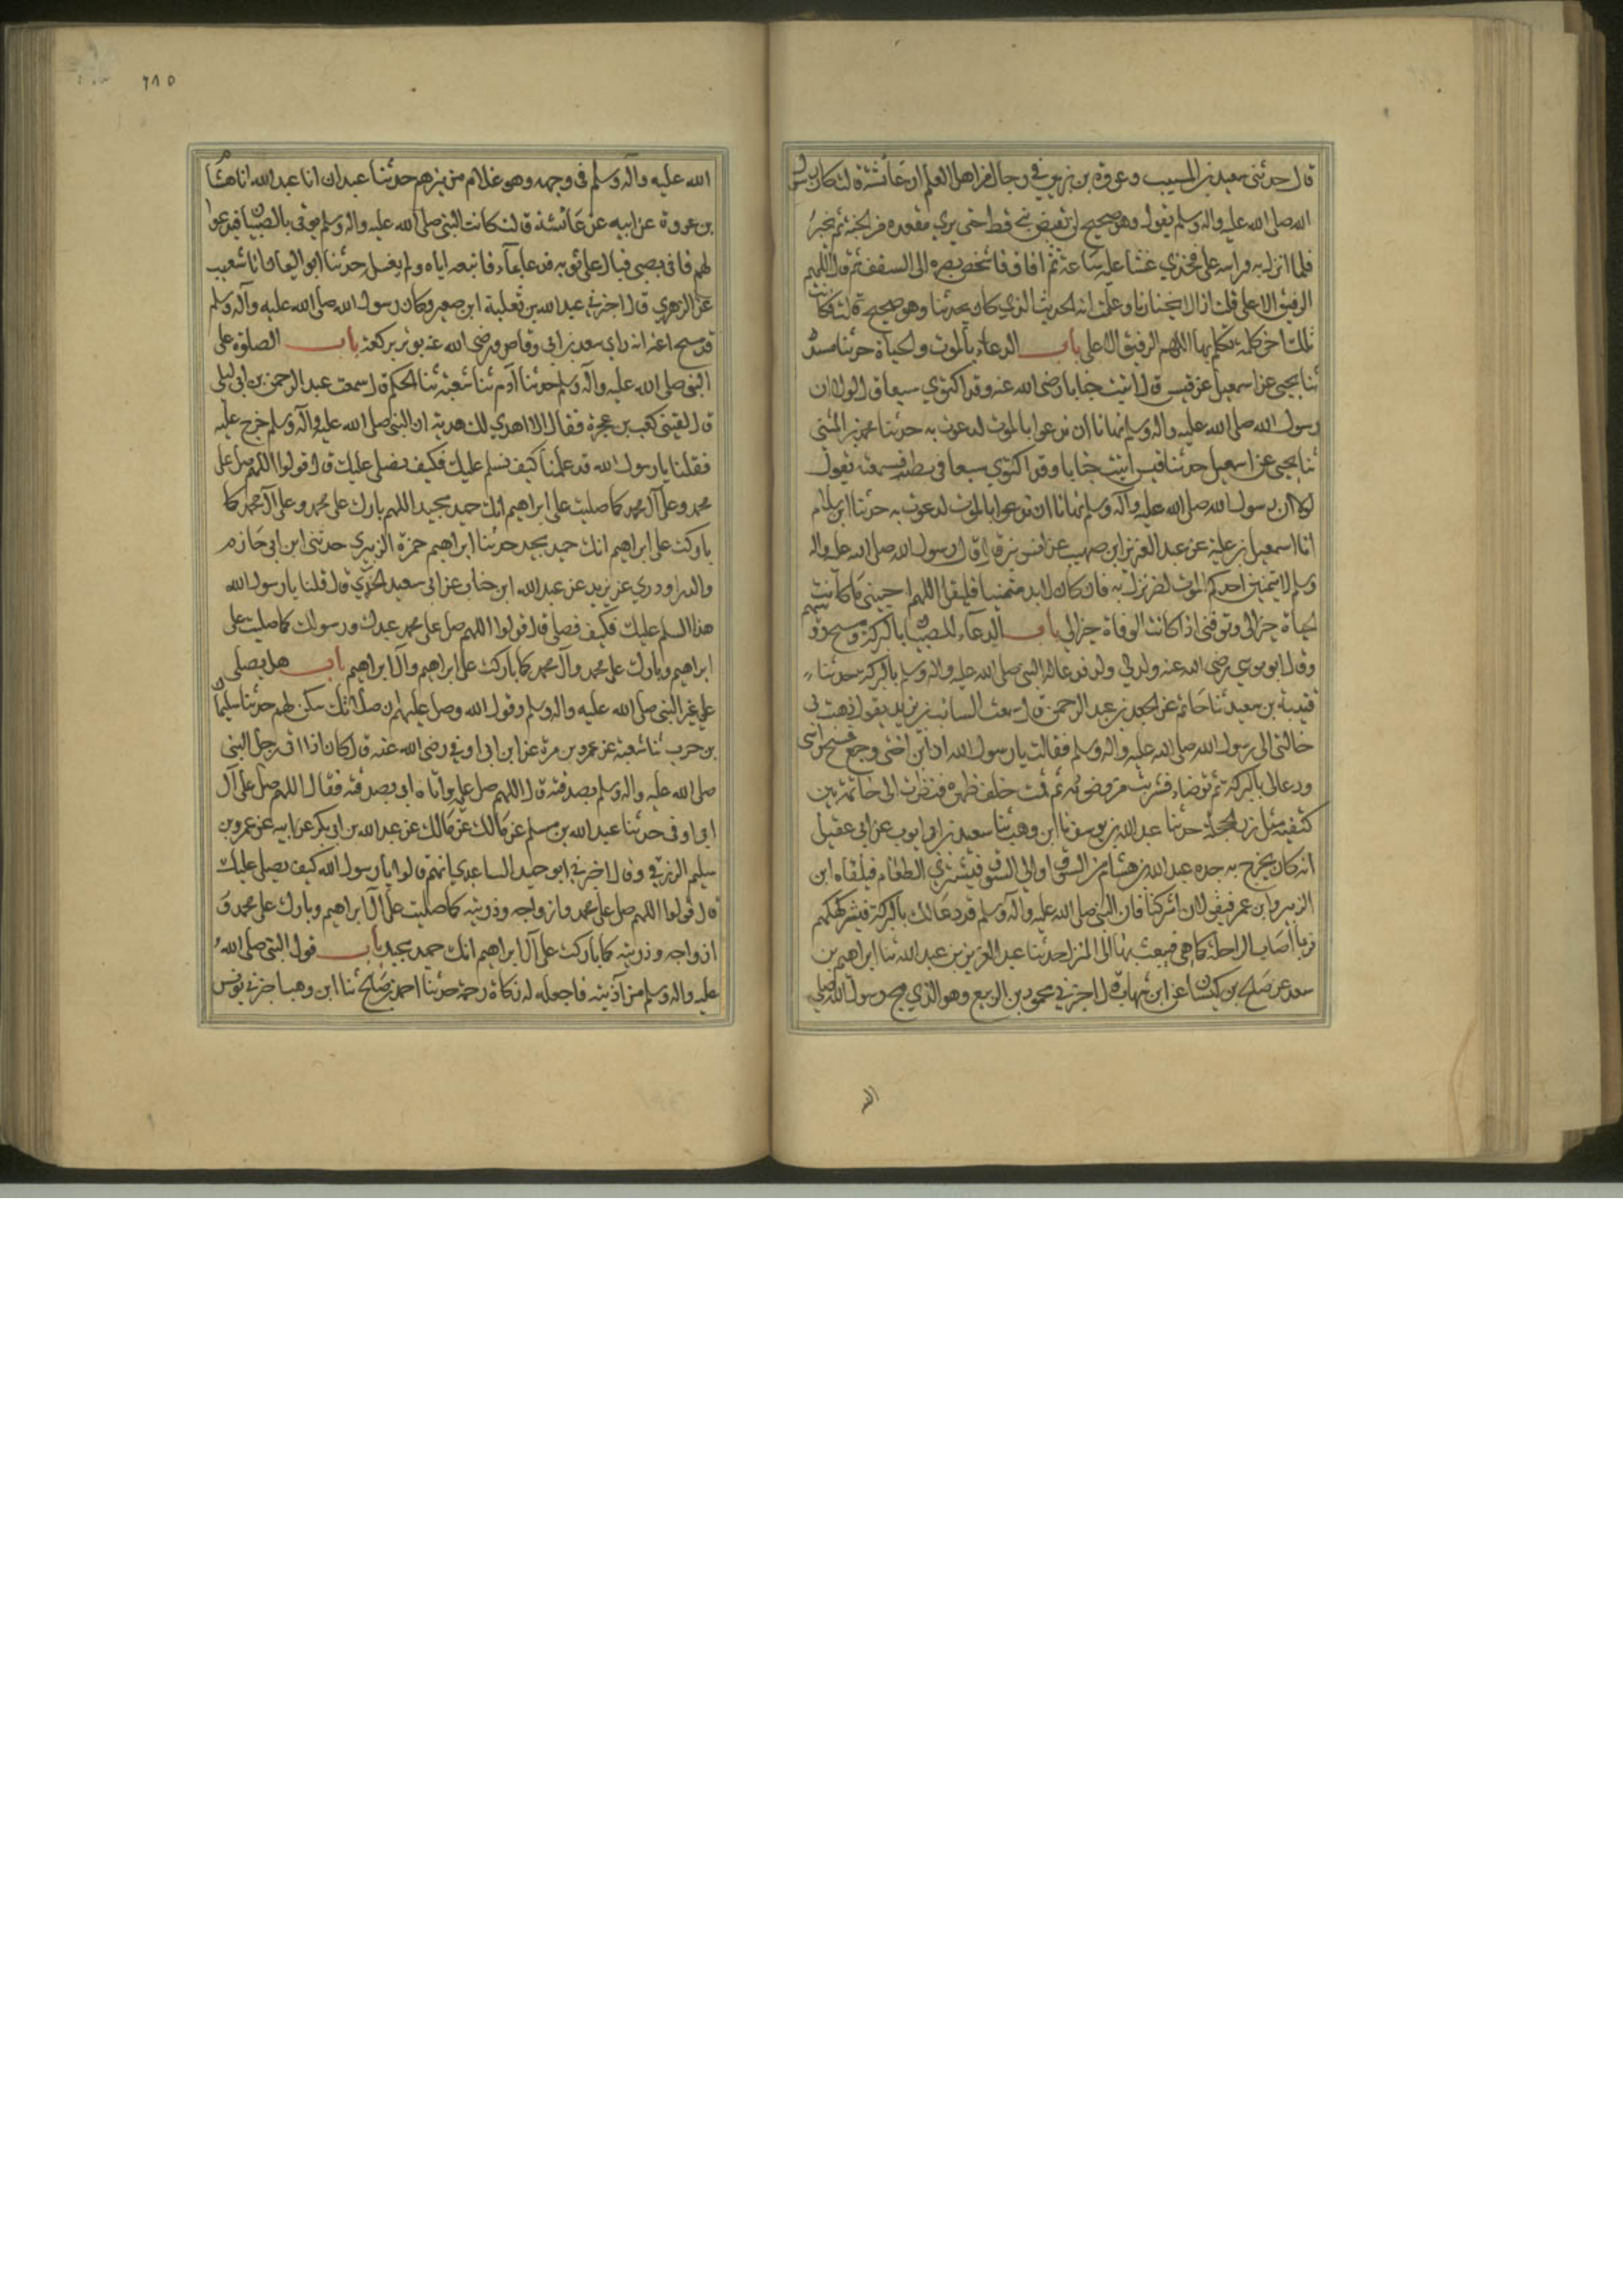 قال حدثنى سعيد بن المسيب وعروة بن الزبير في رجال من اهل العلم ان عائشة قالت كان رسول
الله صلى الله عليه واله وسلم يقول وهو صحيح لن يقبض نبي قط حتى يرى مقعده من الجنة ثم يخير
فلما نزل به وراسه على فخذي غشي عليه ساعة ثم افاق فاشخص بصره الى السقف ثم قال اللهم
الرفيق الاعلى قلت اذا لا يختارنا وعلمت انه الحديث الذي كان يحدثنا وهو صحيح قالت فكانت
تلك اخر كلمة تكلم بها اللهم الرفيق الاعلى باب الدعاء بالموت والحياة حدثنا مسدد
ثنا يحيى عن اسمعيل عن قيس قال اتيت خبابا رضى الله عنه وقد اكتوي سبعا قال لولا ان
رسول الله صلى الله عليه واله وسلم نهانا ان ندعوا بالموت لدعوت به حدثنا محمد بن المثنى
ثنا يحيى عن اسمعيل حدثنا قيس اتيت خبابا وقد اكتوي سبعا في بطنه فسمعته يقول
لولا ان رسول الله صلى الله عليه وآله وسلم نهانا ان ندعوا بالموت لدعوت به حدثنا ابن سلام
انا اسمعيل بن علية عن عبد العزيز ابن صهيب عن انس قال قال رسول الله صلى الله عليه واله
وسلم لا يتمنين احدكم الموت لضر نزل به فان كان لابد متمنيا فليقل اللهم احيينى ما كانت
الحياة خيرا لى وتوفنى اذا كانت الوفاة خيرا لي باب الدعاء للصبيان بالبركة ومسح رؤسهم
وقال ابو موسي رضى الله عنه ولد لي ولد فدعا له النبى صلى الله عليه واله وسلم بالبركة حدثنا
قتيبة بن سعيد ثنا حاتم عن الجعد بن عبد الرحمن قال سمعت السائب بن يزيد يقول ذهبت بي
خالتى الى رسول الله صلى الله عليه واله وسلم فقالت يا رسول الله ان ابن اختى وجع فمسح راسى
ودعا لى بالبركة ثم توضاء فشربت من وضوئه ثم قمت خلف ظهره فنظرت الى خاتمه بين
كتفيه مثل زر الحجلة حدثنا عبد الله بن يوسف نا ابن وهب ثنا سعيد بن ابى ايوب عن ابي عقيل
انه كان يخرج به جده عبد الله بن هشام من السوق او الى السوق فيشتري الطعام فيلقاه ابن
الزبير وابن عمر فيقولان اشركنا فان النبى صلى الله عليه وآله وسلم قد دعا لك بالبركة فيشركهم
فربما اصاب الراحلة كما هي فيبعث بها الى المنزل حدثنا عبد العزيز بن عبد الله ثنا ابراهيم بن
سعد عن صلح بن كيسان عن ابن شهاب قال اخبرني محمود بن الربيع وهو الذي مج رسول الله صلى
الله
٦٨٥
الله عليه وآله وسلم في وجهه وهو غلام من بئرهم حدثنا عبدان انا عبد الله انا هشام
بن عروة عن ابيه عن عائشة قالت كانت النبى صلى الله عليه واله وسلم يوتى بالصبيان فيدعوا
لهم فاتى بصبى فبال على ثوبه فدعا بماء فاتبعه اياه ولم يغسله حدثنا ابو اليمان انا شعيب
عن الزهري قال اخبرني عبد الله بن ثعلبة ابن صعير وكان رسول الله صلى الله عليه وآله وسلم
قد مسح عنه انه راي سعد بن ابي وقاص رضى الله عنه يوتر بركعة باب الصلوة على
النبى صلى الله عليه وآله وسلم حدثنا آدم ثنا شعبة ثنا الحكم قال سمعت عبد الرحمن بن ابى ليلى
قال لقينى كعب بن عجرة فقال الا اهدي لك هدية ان النبى صلى الله عليه وآله وسلم خرج علينا
فقلنا يا رسول الله قد علمنا كيف نسلم عليك فكيف نصلى عليك قال قولوا اللهم صل على
محمد وعلى آل محمد كما صليت على ابراهيم انك حميد مجيد اللهم بارك على محمد وعلى آل محمد كما
باركت على ابراهيم انك حميد مجيد حدثنا ابراهيم حمزة الزبيري حدثنى ابن ابي حازم
والدراوردي عن يزيد عن عبد الله ابن خباب عن ابى سعيد الخدري قال قلنا يا رسول الله
هذا السلم عليك فكيف نصلى قال قولوا اللهم صل على محمد عبدك ورسولك كما صليت على
ابراهيم وبارك على محمد وآل محمد كما باركت على ابراهيم وآل ابراهيم باب هل يصلى
على غير النبى صلى الله عليه واله وسلم وقول الله وصل عليهم ان صلاتك سكن لهم حدثنا سليمان
بن حرب ثنا شعبة عن عمرو بن مرة عن ابن ابى اوفي رضى الله عنه قال كان اذا اتى رجل النبى
صلى الله عليه واله وسلم بصدقته قال اللهم صل عليه واتاه ابى بصدقته فقال اللهم صل على آل
ابى اوفى حدثنا عبد الله بن مسلم عن مالك عن مالك عن عبد الله بن ابى بكر عن ابيه عن عمرو بن
سليم الزرقي قال اخبرني ابو حميد الساعدي انهم قالوا يا رسول الله كيف نصلى عليك
قال قولوا اللهم صل على محمد وازواجه وذريته كما صليت على آل ابراهيم وبارك على محمد و
ازواجه وذريته كما باركت على آل ابراهيم انك حميد مجيد باب قول النبى صلى الله
عليه واله وسلم من آذيته فاجعله له زكاة ورحمة حدثنا احمد بن صلح ثنا ابن وهب اخبرني يونس